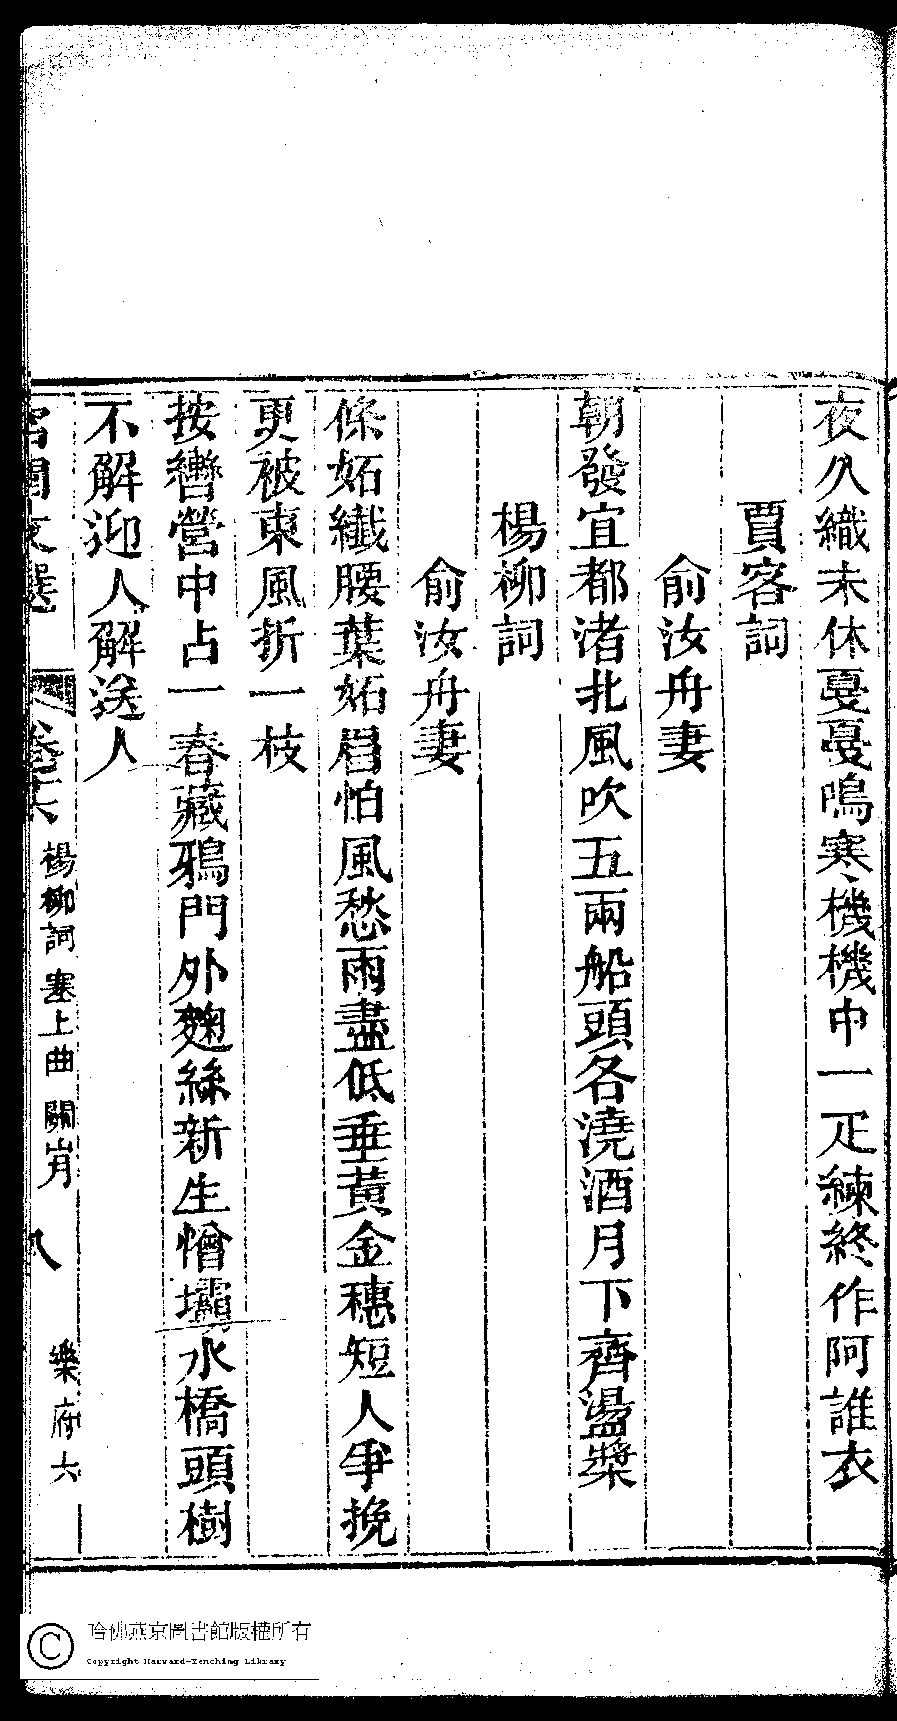 夜久織未休戞戞鳴寒機機中一疋練終作阿誰衣
賈客詞
俞汝舟妻
朝發宜都渚北風吹五兩船頭各澆酒月下齊盪槳
楊柳詞
俞汝舟妻
條妬纖腰葉妬眉怕風愁雨盡低垂黃金穗短人爭挽
更被東風折一枝
按轡營中占一春藏鴉門外麴絲新生憎㶚水橋頭樹
不解迎人解送人
文選 卷十六 楊柳詞 塞上曲 關山月 八 樂府六
哈佛燕京圖書館版權所有
Copyright Harvard-Yenching Library